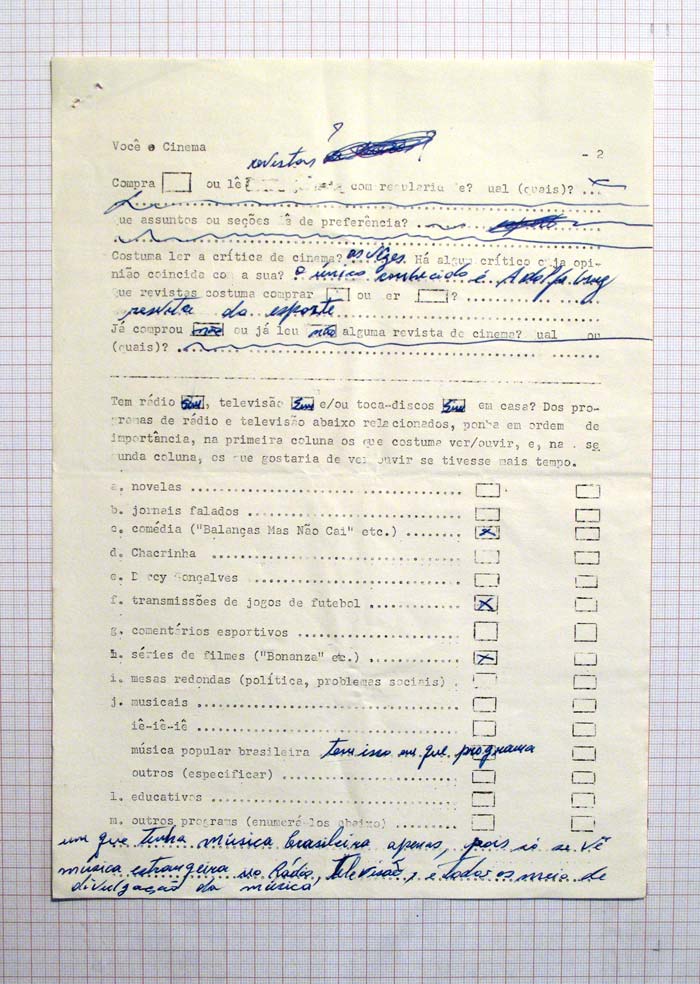 Você e Cinema - 2
revistas
Compra ou lê com regularidade? ual (quais)? ...
ue assuntos ou seções lê de preferência?
Costuma ler a crítica de cinema? as vezes. Há algum crítico cuja opi-
nião coincida com a sua? o único conhecido é
ue revistas costuma comprar ou er ?
revista do esporte
Já comprou não ou já leu não alguma revista de cinema? ual ou
(quais)?
Tem rádio Sim, televisão Sim e/ou toca-discos Sim em casa? Dos pro-
gramas de rádio e televisão abaixo relacionados, ponha em ordem de
importância, na primeira coluna os que costuma ver/ouvir, e, na se
gunda coluna, os que gostaria de ver ouvir se tivesse mais tempo.
a. novelas
b. jornais falados
c. comédia ("Balanças Mas Não Cai" etc.) x
d. Chacrinha
e. D rcy Gonçalves
f. transmissões de jogos de futebol x
g. comentários esportivos
h. séries de filmes ("Bonanza" etc.) x
i. mesas redondas (política, problemas sociais)
j. musicais
iê-iê-iê
música popular brasileira tem isso em que programa
outros (especificar)
l. educativos
m. outros programs (enumerá-los abaixo)
um que tenha música brasileira apenas, pois só se vê
música estrangeira no Rádio, Televisão, e todos os meio de
divulgação da música